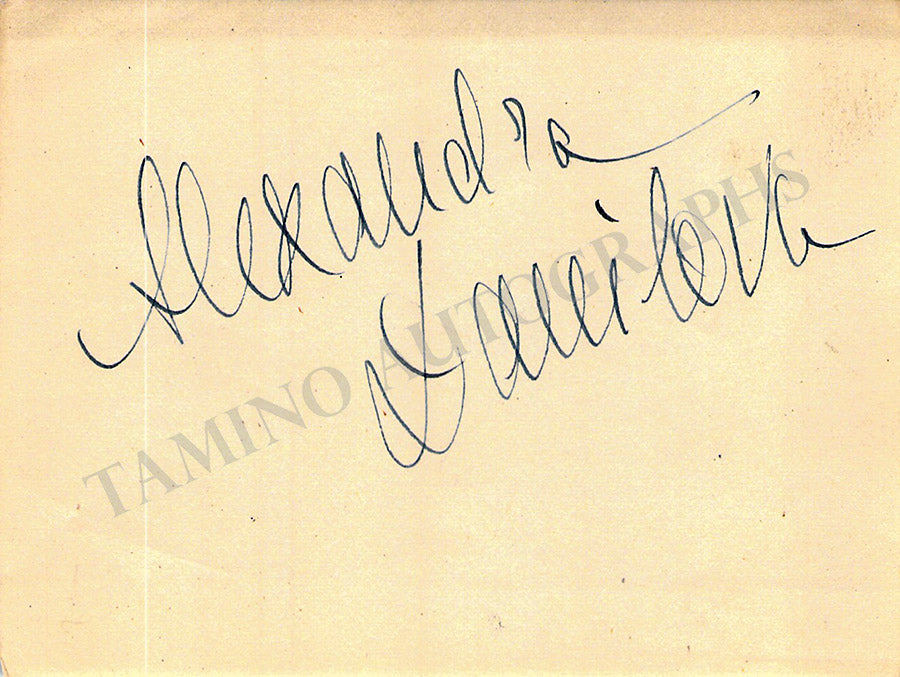 Alexandra
Danilova
TAMINO AUTOGRAPHS